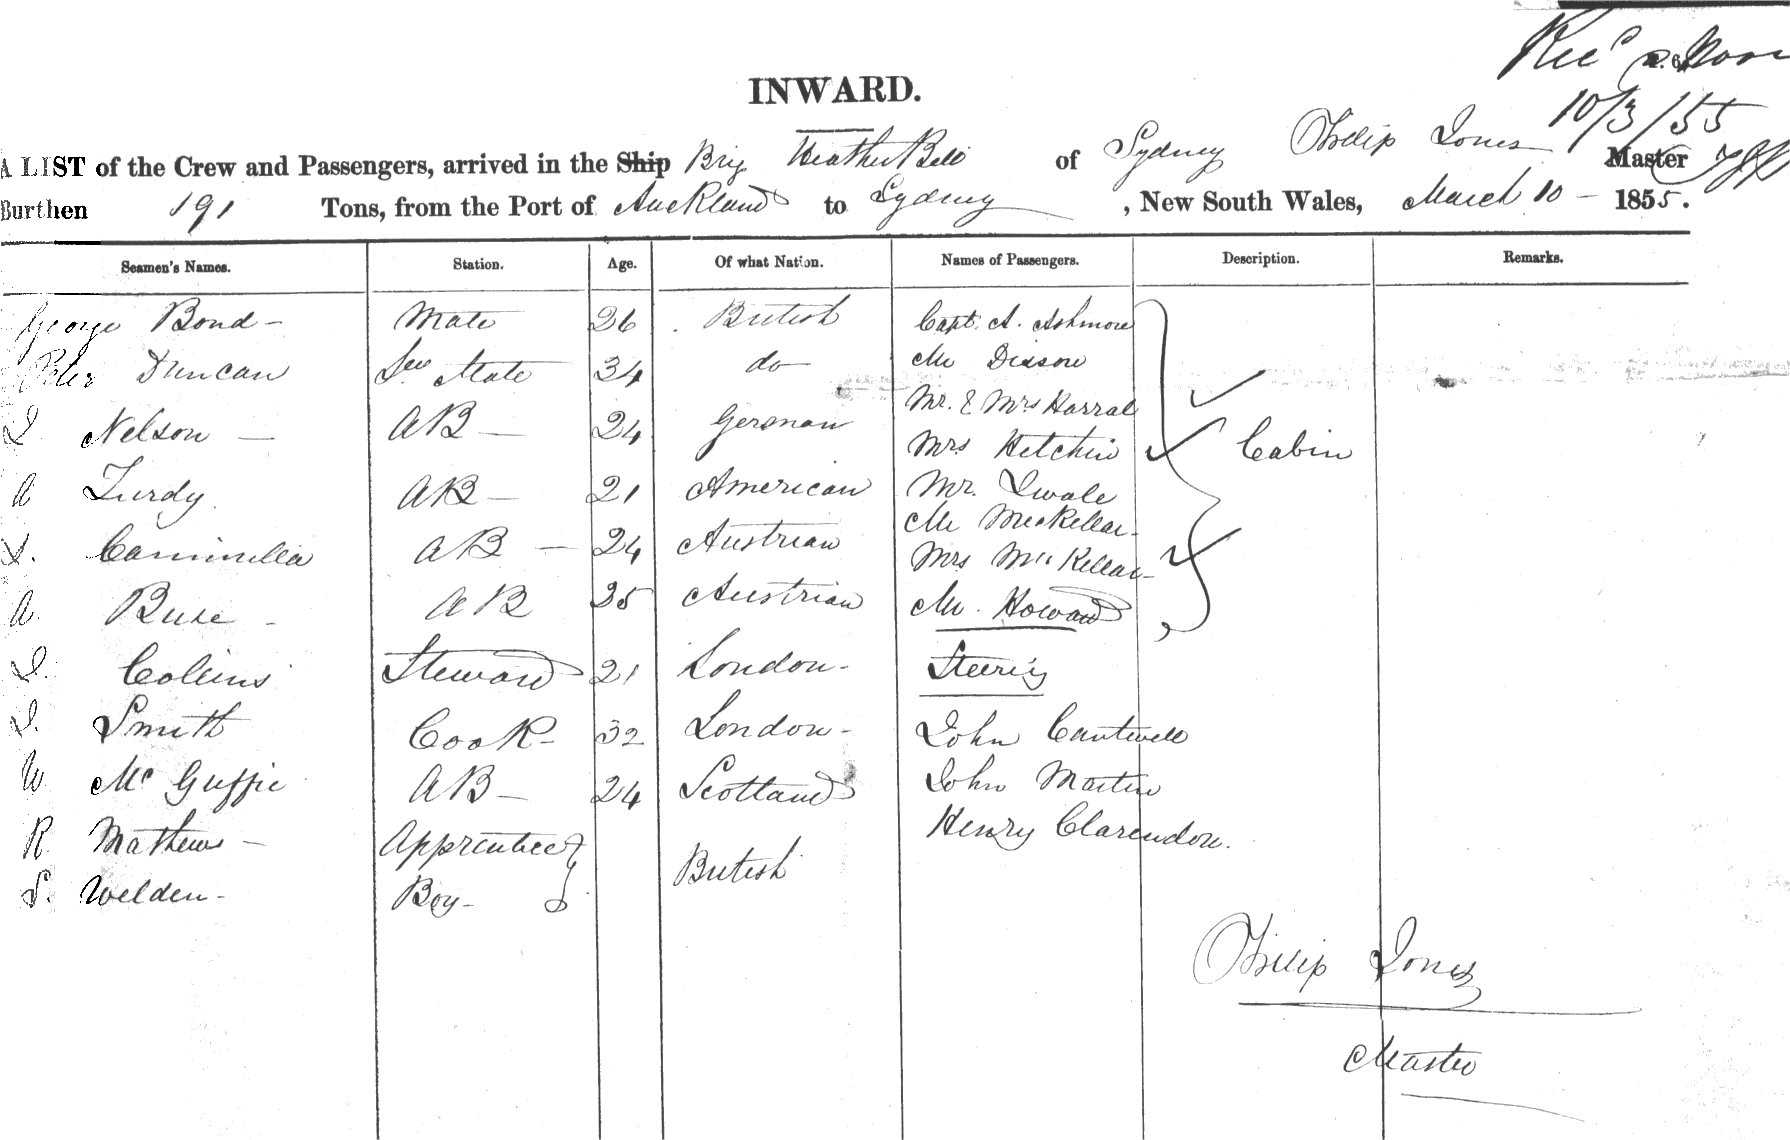 Recd Noon
10/3/55
INWARD.
A LIST of the Crew and Passengers, arrived in the Ship Brig Heather Bell of Sydney Philip Jones Master
Burthen 191 Tons, from the Port of Auckland to Sydney, New South Wales, March 10 - 1855.
Seamen's Names. Station. Age. Of what Nation. Names of Passengers. Description. Remarks.
George Bond - Mate 26 British Capt. A. Ashmore
Peter Duncan Mate 34 do Mr Dixson
J. Nelson - AB - 24 German Mr. & Mrs Harral
Mrs Hetchin Cabin
A Turdy. AB - 21 American Mr. Swale
Mr McKellar -
Camimilla AB - 24 Austrian Mrs McKellar -
A. Buse - AB 25 Austrian Mr. Howard
J. Collins Steward 21 London - Steerig
J. Smith Cook - 32 London - John Cantwell
W McGuffie AB - 24 Scotland John Martin
R Mathews - Apprentice Henry Clarendon.
British
S. Welden - Boy -
Philip Jones
Master